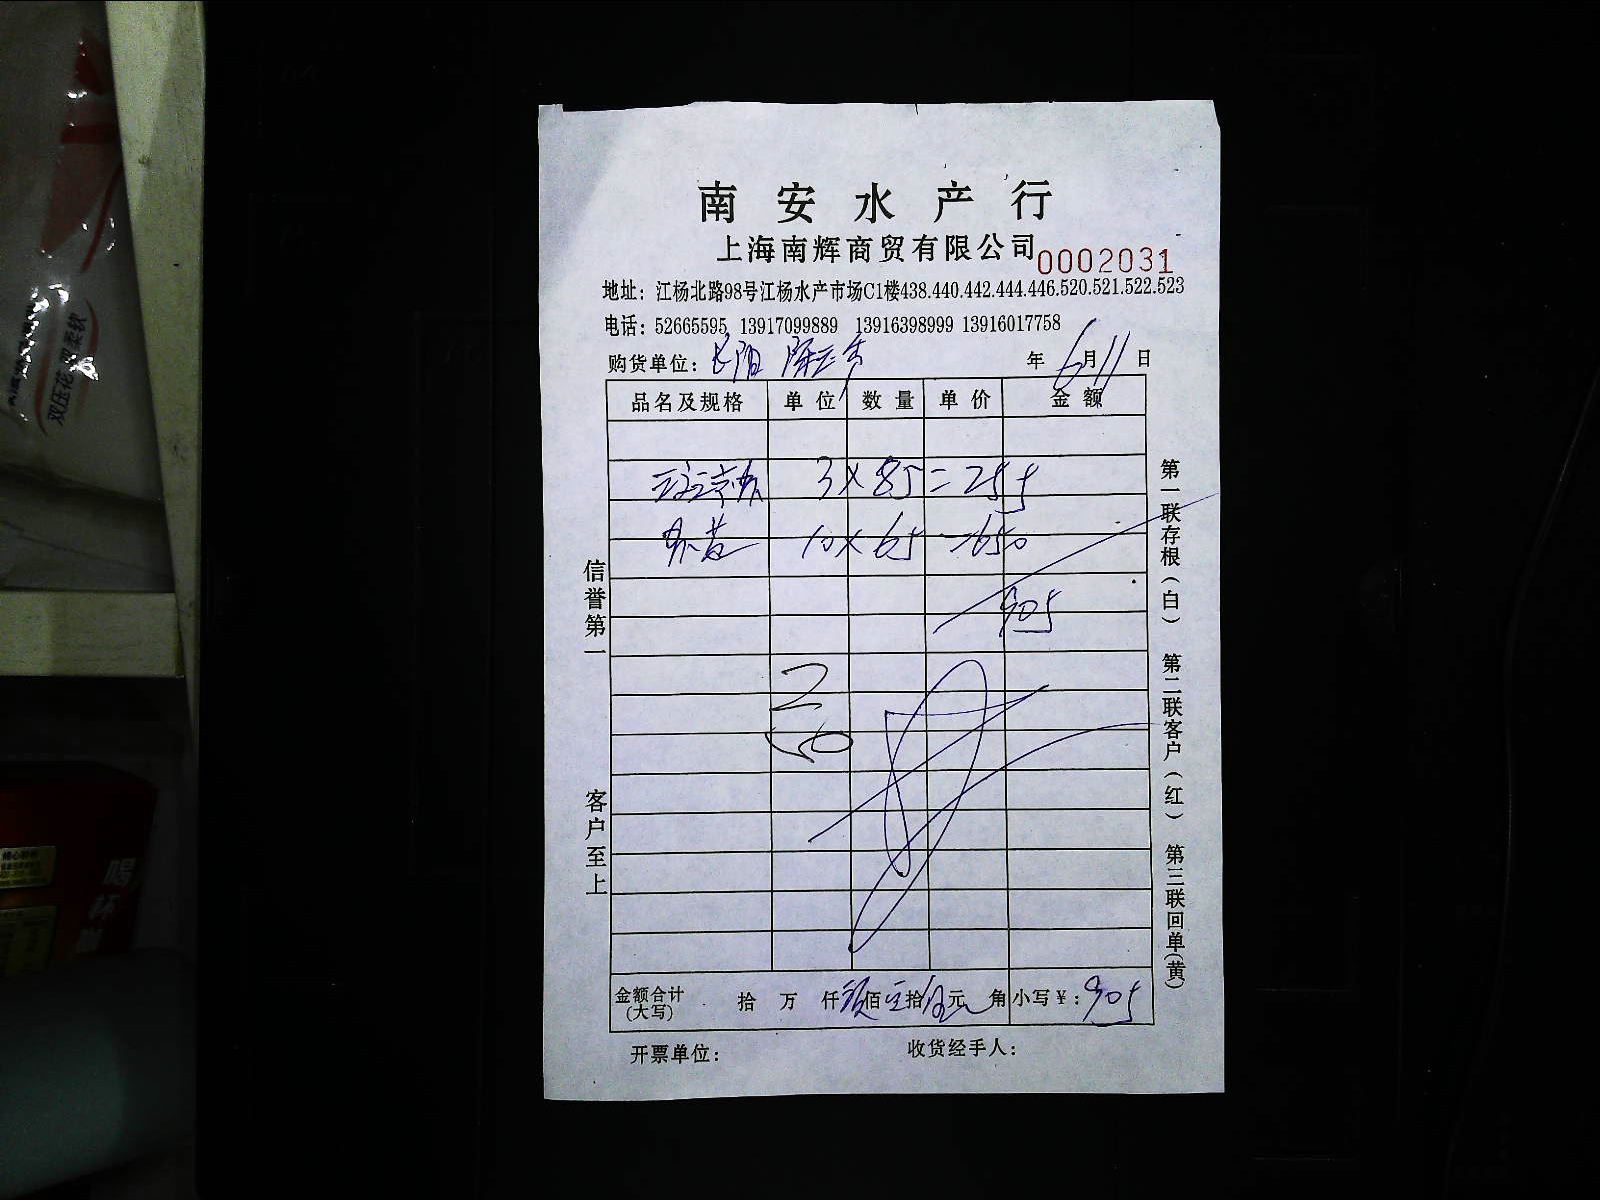 南安水产行
上海南辉商贸有限公司 0002031
地址：江杨北路98号江杨水产市场C1楼438.440.442.444.446.520.521.522.523
电话：52665595 13917099889 13916398999 13916017758
购货单位：长阳 年 6月11日
品名及规格 单位 数量 单价 金额
3×85=255
10×65=650
905
2
金额合计(大写) 拾 万 仟 玖佰 零拾 伍元 角 小写￥：905
开票单位： 收货经手人：
信誉第一
客户至上
第一联存根（白） 第二联客户（红） 第三联回单(黄)
双压花 更柔软
喝杯